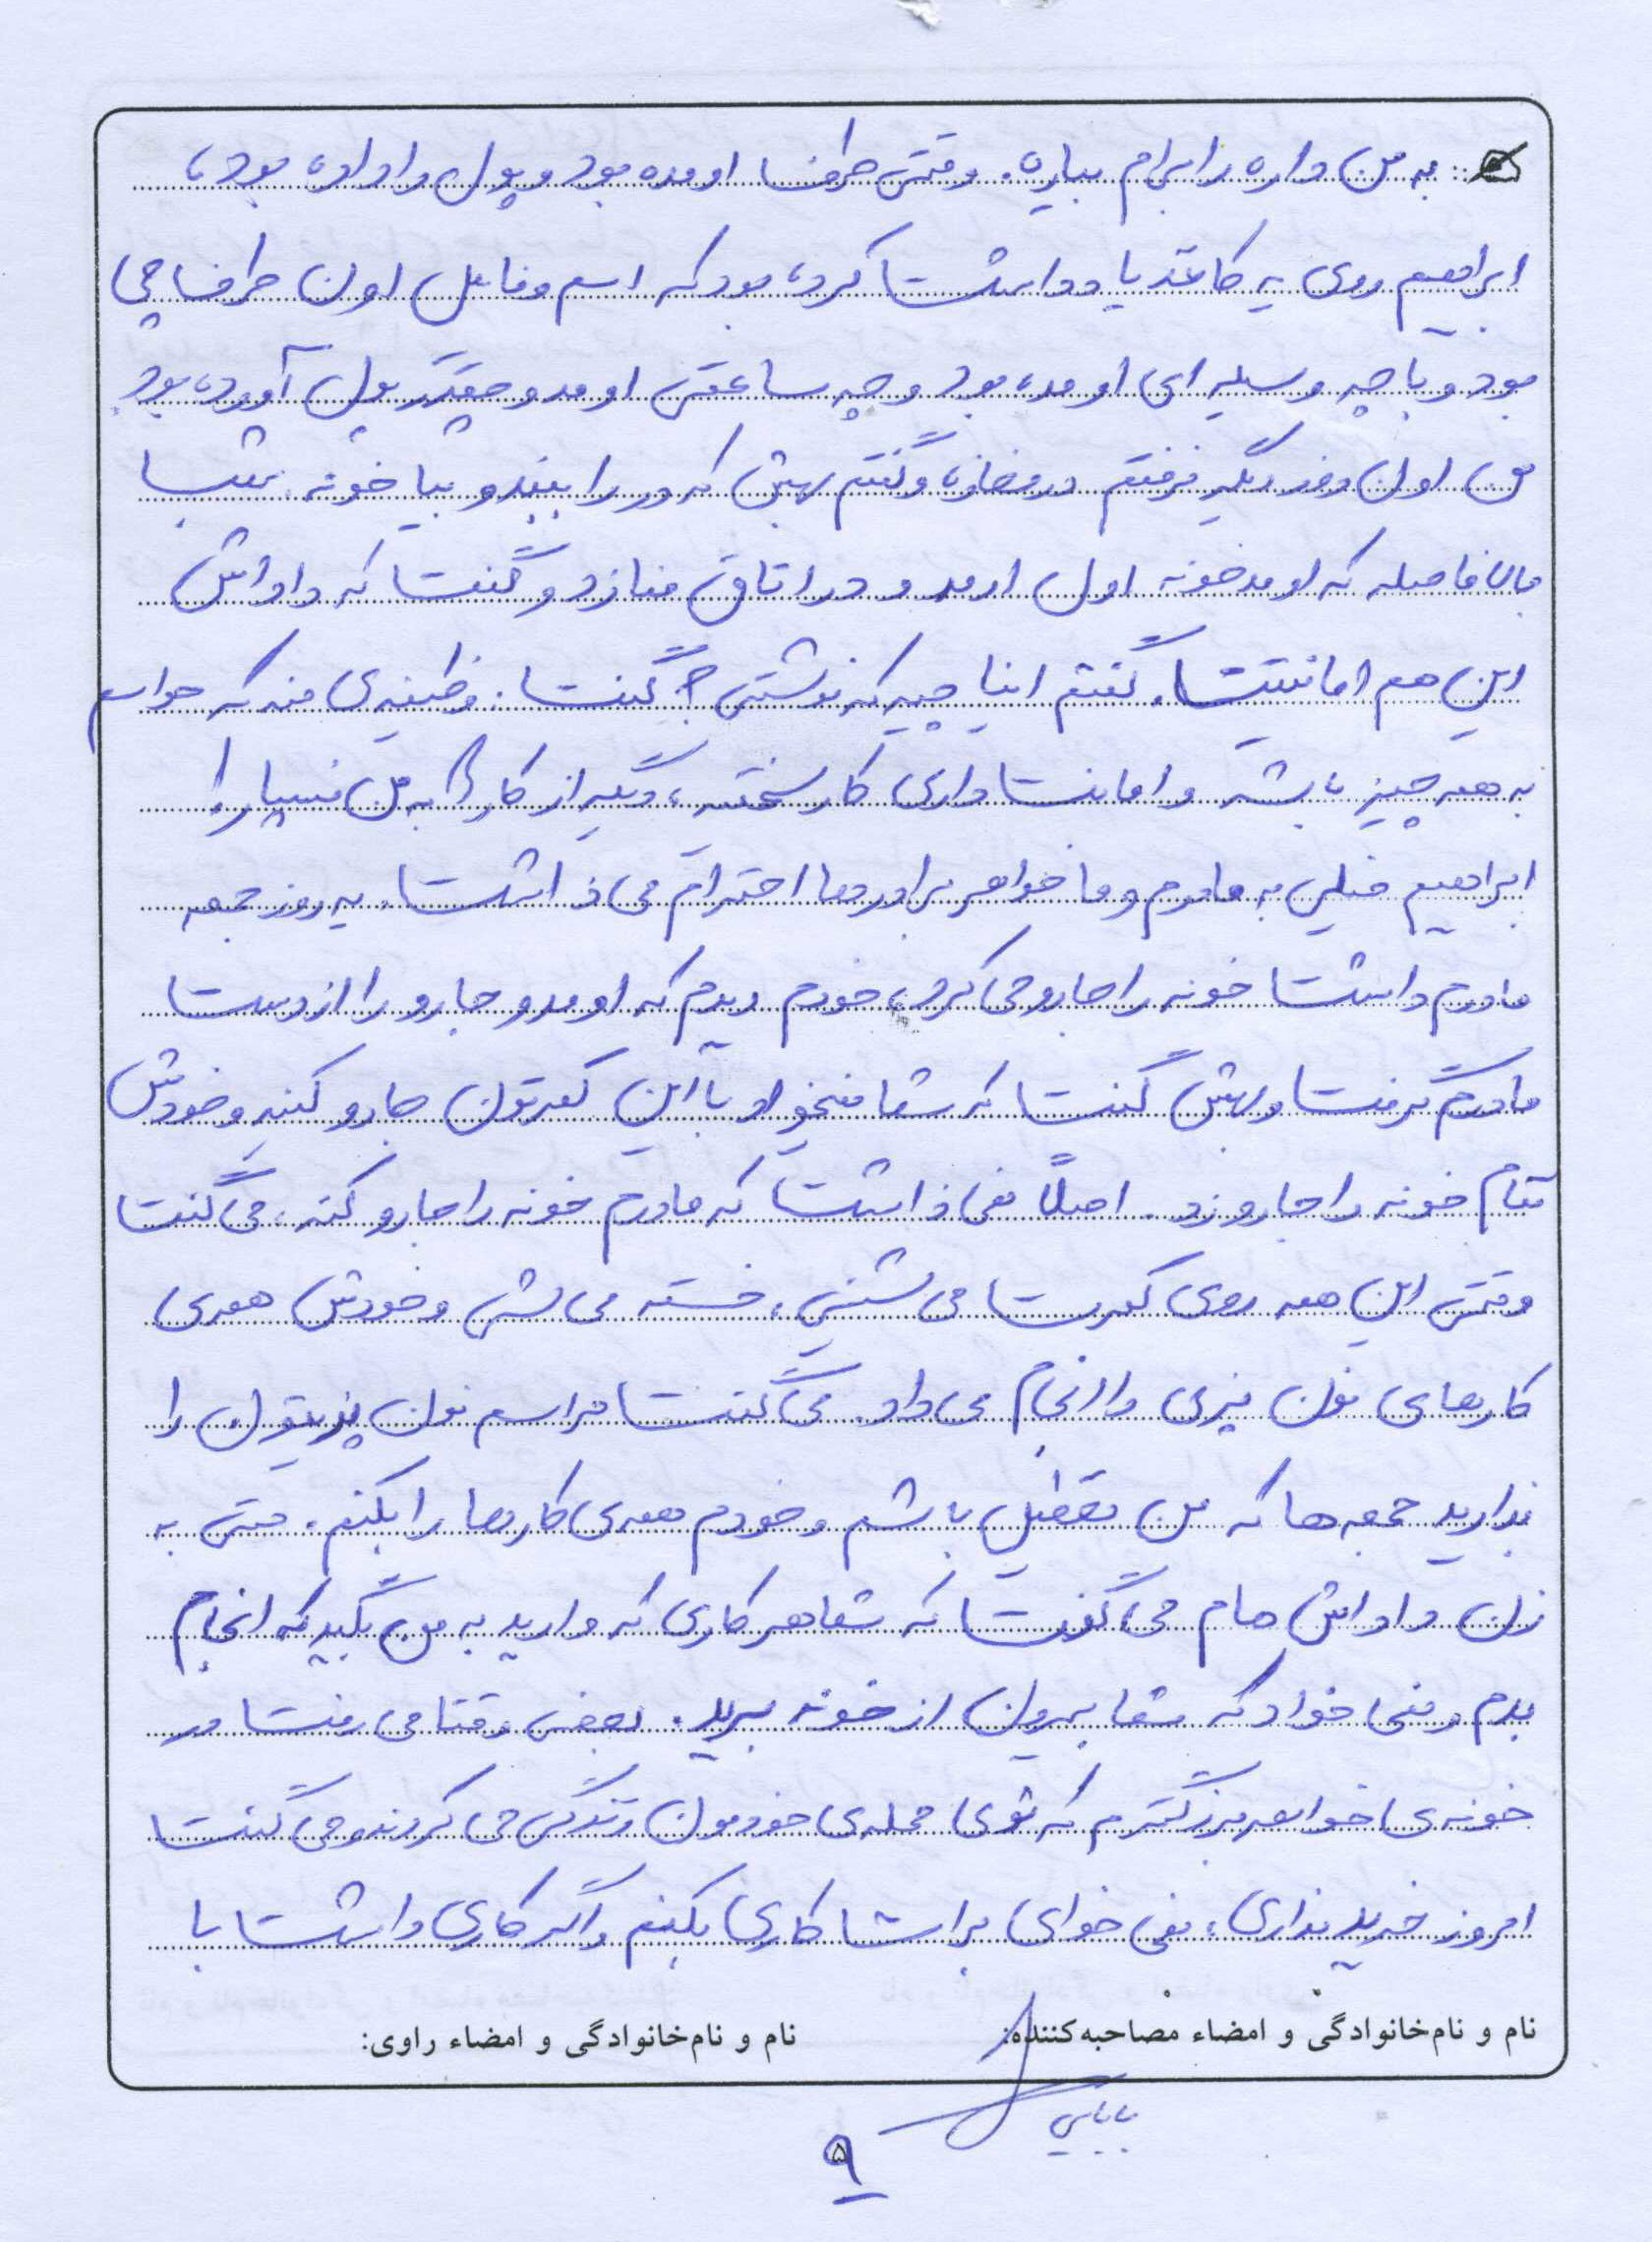 به من داره را برام بیاره. وقتی طرف اومده بود و پول را داده بود،
ابراهیم روی یه کاغذ یادداشت کرده بود که اسم و فامیل اون طرف چی
بود و با چه وسیله ای اومده بود و چه ساعتی اومد و چقدر پول آورده بود
من اون روز دیگه نرفتم در مغازه و گفتم بهش که در را ببند و بیا خونه. شب
با فاصله که اومد خونه اول اومد و در اتاق منا زد و گفت که داداش
این هم امانتیت. گفتم اینا چیه که نوشتی؟ گفت: وظیفه‌ی منه که حواسم
به همه چیز باشه و امانت داری کار سختیه، دیگه از کارا به من نسپار!
ابراهیم خیلی به مادرم و ما خواهر برادرها احترام می ذاشت. یه روز جمعه
مادرم داشت خونه را جارو می کرد، خودم دیدم که اومد و جارو را از دست
مادرم گرفت و بهش گفت که شما نمیخواد با این کمرتون جارو کنید و خودش
تمام خونه را جارو زد. اصلاً نمی ذاشت که مادرم خونه را جارو کنه، می گفت
وقتی این همه روی کمرت می شینی، خسته می شی و خودش همه‌ی
کارهای نون پزی را انجام می داد. می گفت مراسم نون پزیتون را
بذارید جمعه ها که من تعطیل باشم و خودم همه‌ی کارها را بکنم. حتی به
زن داداش هام می گفت که شما هر کاری که دارید به من بگید که انجام
بدم و نمی خواد که شما بیرون از خونه برید. بعضی وقتا می رفت در
خونه‌ی خواهر بزرگترم که توی محله‌ی خودمون زندگی می کردند و می گفت
امروز خرید نداری، نمی خوای برات کاری بکنم و اگر کاری داشت با
نام و نام‌خانوادگی و امضاء مصاحبه‌کننده:
نام و نام‌خانوادگی و امضاء راوی:
بابایی
۹